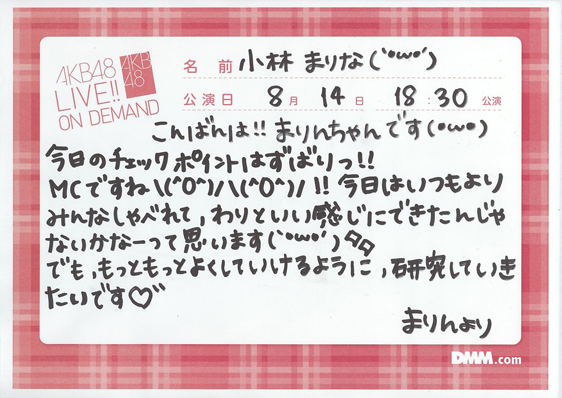 AKB48
LIVE!!
ON DEMAND
AKB
48
名前 小林 まりな(`•ω•´)
公演日 8月 14日 18:30公演
こんばんは!! まりんちゃんです(•ω•)
今日のチェックポイントはずばりっ!!
MCですね\(^O^)/\(^O^)/!! 今日はいつもより
みんなしゃべれて,わりといい感じにできたんじゃ
ないかなーって思います(`•ω•´)
でも,もっともっとよくしていけるように,研究していき
たいです♡
まりんより
DMM.com